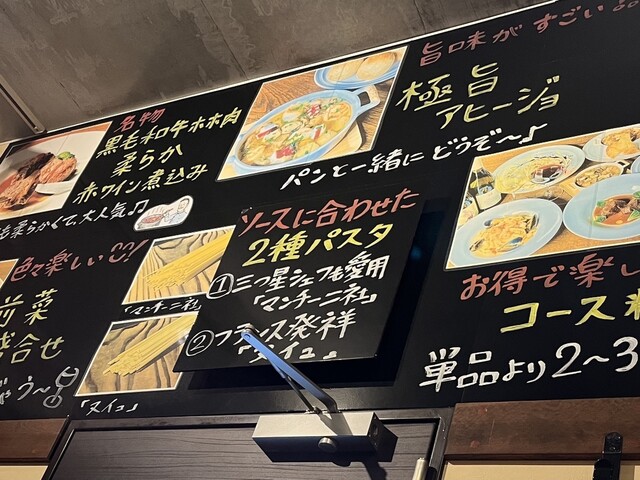 名物
黒毛和牛ホホ肉
柔らか
赤ワイン煮込み
も柔らかくて、大人気♪
旨味がすごい
極旨
アヒージョ
パンと一緒にどうぞ〜♪
色々楽しい♡!
前菜
盛合せ
ソースに合わせた
2種パスタ
①三つ星シェフも愛用
「マンチーニ社」
②フランス発祥
「ヌイユ」
「マンチーニ社」
「ヌイユ」
お得で楽し
コース料
単品より2〜3